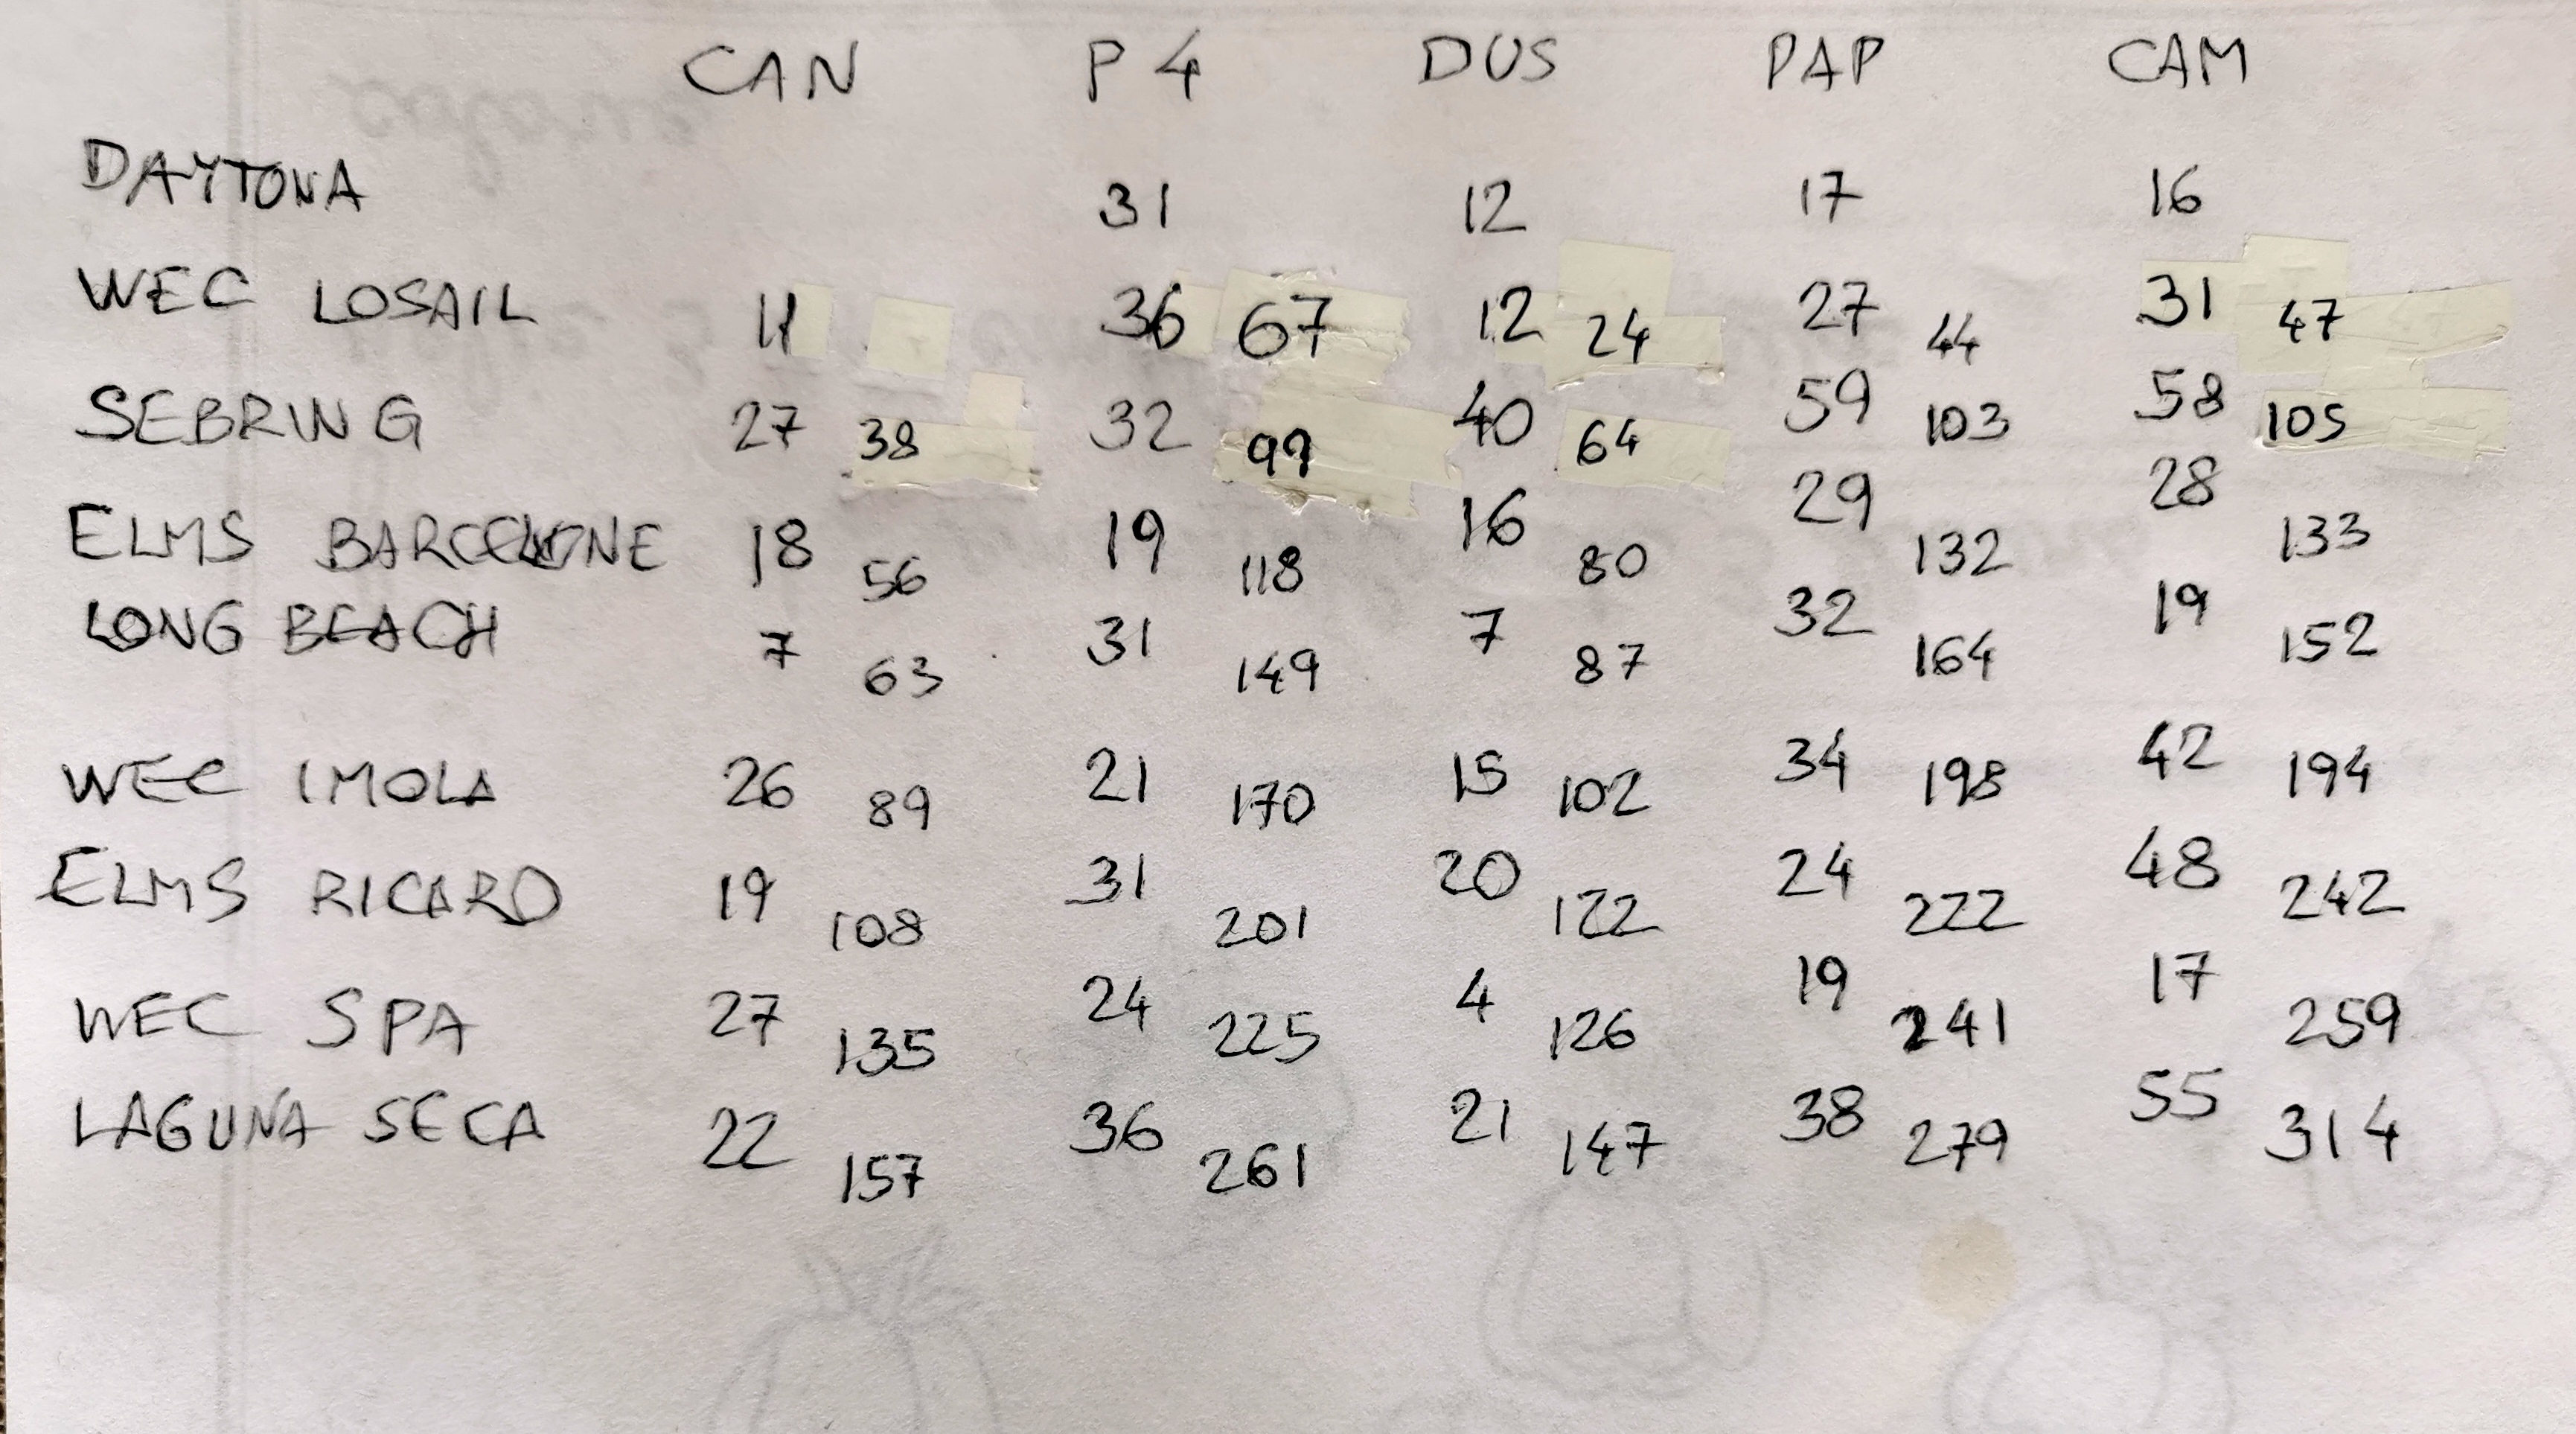 CAN P4 DUS PAP CAM
DAYTONA 31 12 17 16
WEC LOSAIL 11 36 67 12 24 27 44 31 47
SEBRING 27 38 32 99 40 64 59 103 58 105
ELMS BARCELONE 18 56 19 118 16 80 29 132 28 133
LONG BEACH 7 63 31 149 7 87 32 164 19 152
WEC IMOLA 26 89 21 170 15 102 34 198 42 194
ELMS RICARD 19 108 31 201 20 122 24 222 48 242
WEC SPA 27 135 24 225 4 126 19 241 17 259
LAGUNA SECA 22 157 36 261 21 147 38 279 55 314